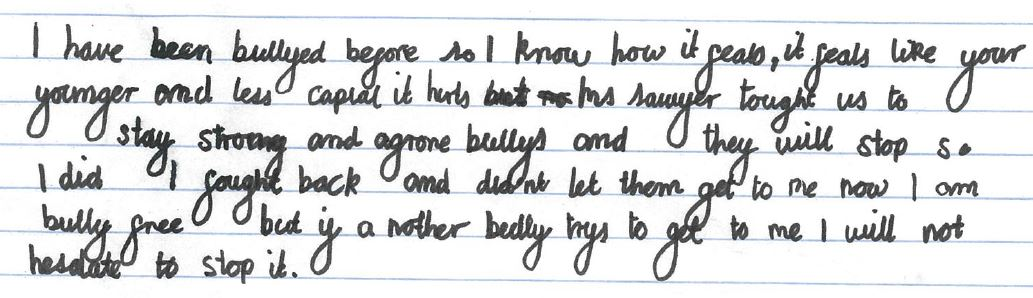 I have been bullyed before so I know how it feals, it feals like your
younger and less capial it hurts but Ms sawyer tought us to
stay strong and agnore bullys and they will stop so
I did I fought back and didnt let them get to me now I am
bully free but if a nother bedly trys to get to me I will not
hesdate to stop it.